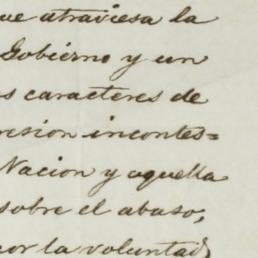 que atraviesa la
Gobierno y un
s caracteres de
resion incontes=
Nacion y aquella
sobre el abuso,
por la voluntad